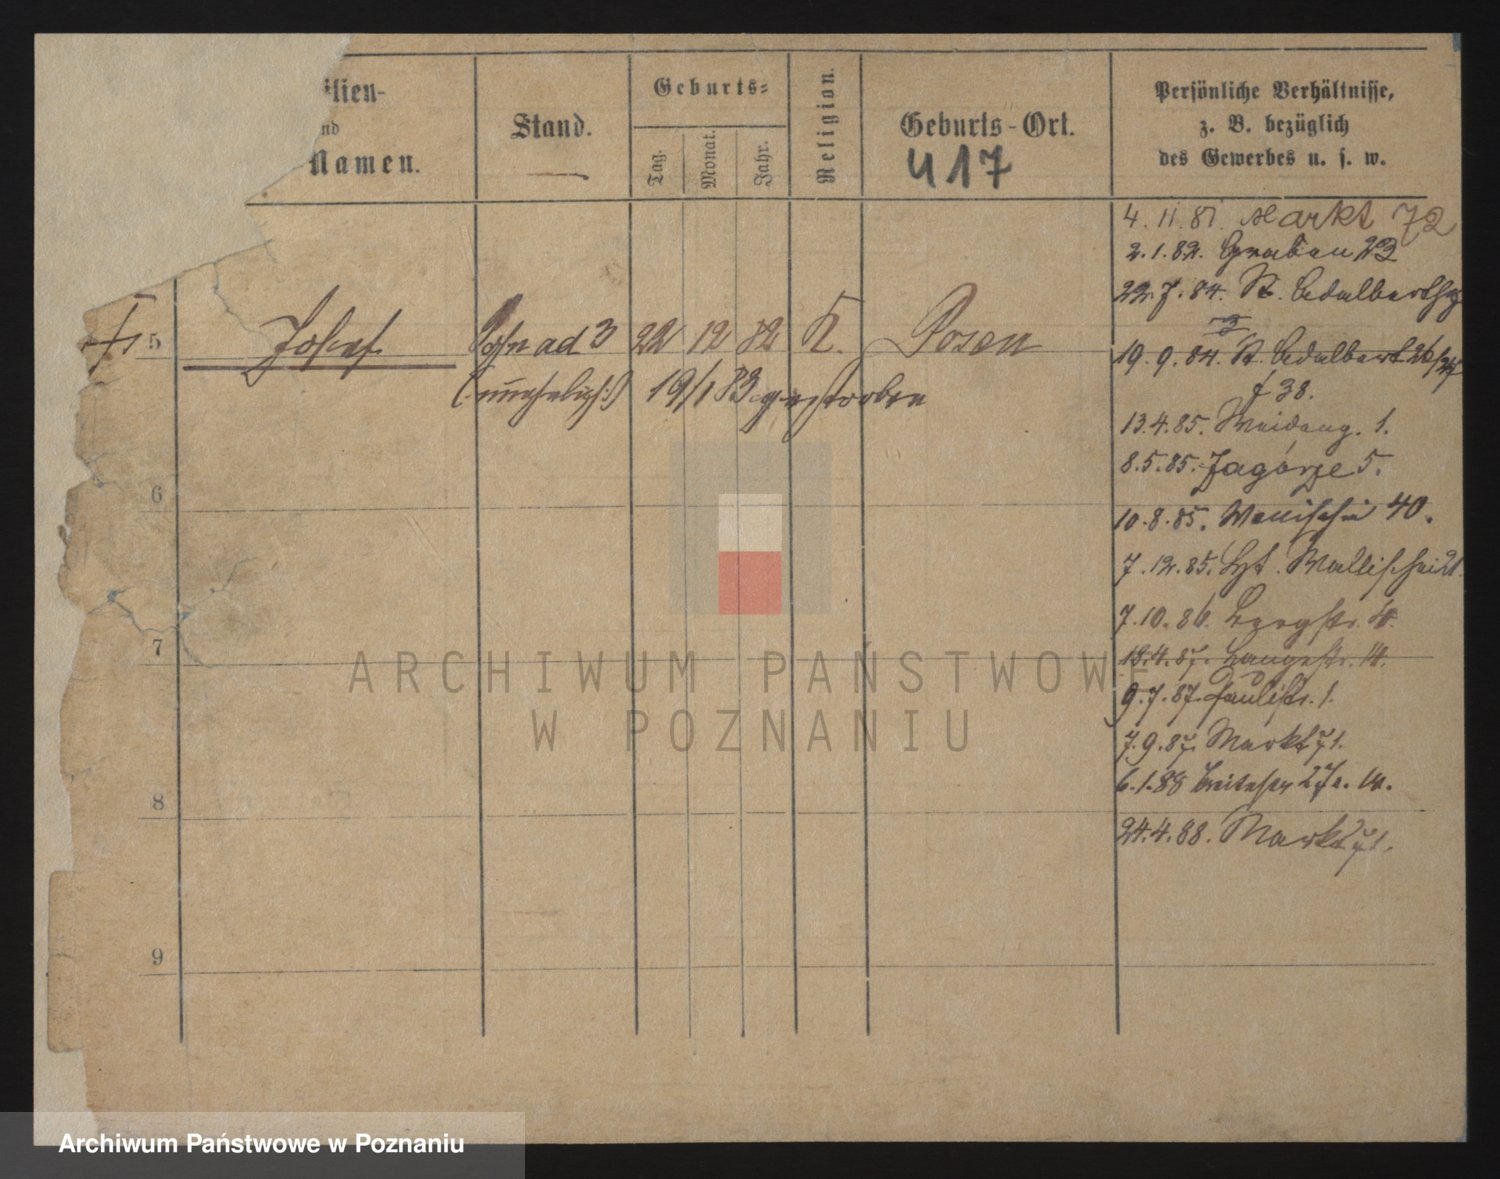 ilien-
nd
Namen.
Stand.
Geburts-
Tag.
Monat.
Jahr.
Religion.
Geburts-Ort.
417
Persönliche Verhältnisse,
z. B. bezüglich
des Gewerbes u. s. w.
4.11.81. Markt 72
2.1.82. Graben 23
22.7.84. St. Adalbertstr
3
5 Josef Sohn ad 3 22 12 82 K. Posen
19.9.84. St. Adalbert 26/27
(unehelich) 19/1 83 gestorben
f 38.
13.4.85. Weideng. 1.
8.5.85. Zagórze 5.
6
10.8.85. Wallischei 40.
7.12.85. Wallischei
7.10.86. Bergstr. 4.
7
13.4.87. Langestr. 14.
9.7.87. Paulistr. 1.
7.9.87. Markt 71.
8
6.1.88 Breitestr
24.4.88. Markt 71.
9
ARCHIWUM PAŃSTWOWE
W POZNANIU
Archiwum Państwowe w Poznaniu